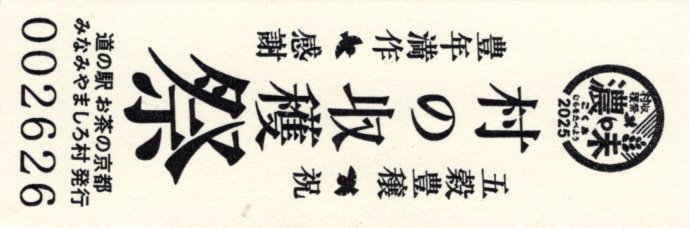 濃味
2025
五穀豊穣 祝
村の収穫祭
豊年満作 感謝
道の駅 お茶の京都
みなみやましろ村 発行
002626